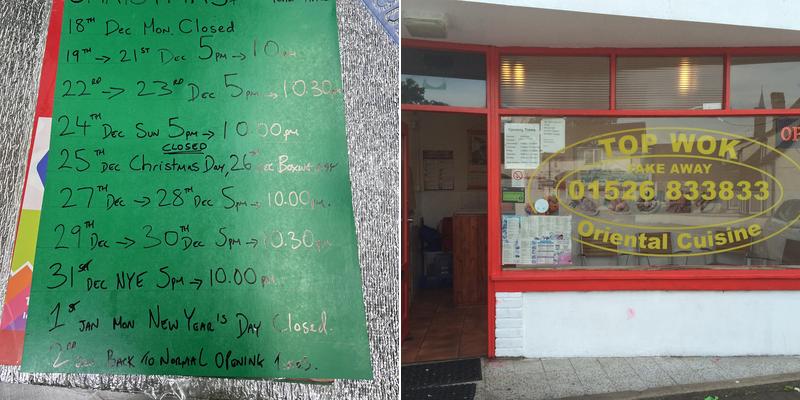 18TH Dec Mon. Closed
19TH → 21ST Dec 5pm → 10pm
22RD → 23RD Dec 5pm → 10.30pm
24TH Dec Sun 5pm → 10.00pm
CLOSED
25TH Dec Christmas Day, 26TH Dec Boxing Day
27TH Dec → 28TH Dec 5pm → 10.00pm.
29TH Dec → 30TH Dec 5pm → 10.30pm
31ST Dec NYE 5pm → 10.00pm
1st Jan Mon New Year's Day Closed.
2RD Back to Normal Opening
TOP WOK
TAKE AWAY
01526 833833
Oriental Cuisine
Opening Times